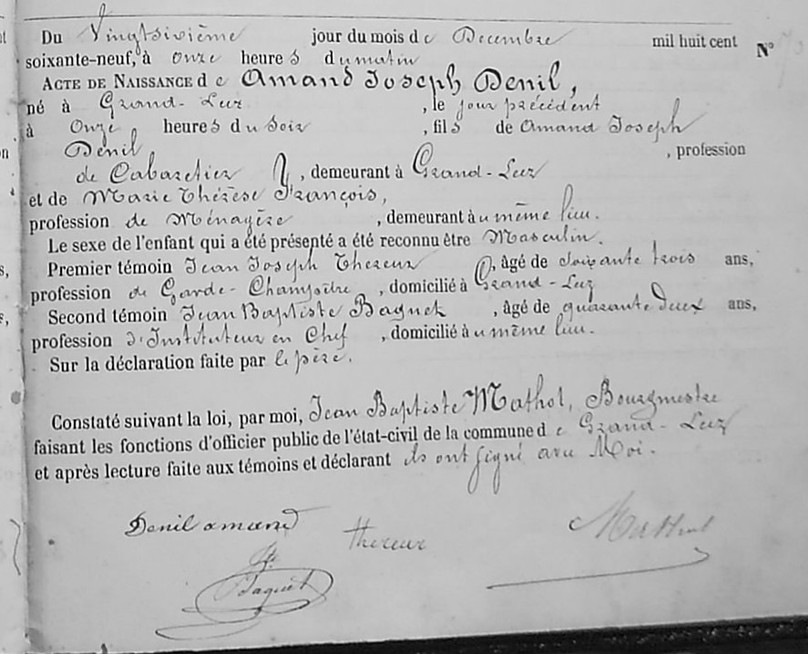 Du Vingtsixième jour du mois de Decembre mil huit cent N°
soixante-neuf, à onze heures du matin
ACTE DE NAISSANCE de Amand Joseph Denil,
né à Grand-Leez, le jour précédent
à Onze heures du Soir, fils de Amand Joseph
Denil, profession
de Cabaretier, demeurant à Grand-Leez
et de Marie Thérèse François,
profession de Ménagère, demeurant au même lieu.
Le sexe de l'enfant qui a été présenté a été reconnu être Masculin.
Premier témoin Jean Joseph Thereur, âgé de soixante trois ans,
profession de Garde-Champêtre, domicilié à Grand-Leez
Second témoin Jean Baptiste Baquet, âgé de quarante deux ans,
profession d'Instituteur en Chef, domicilié au même lieu.
Sur la déclaration faite par le père.
Constaté suivant la loi, par moi, Jean Baptiste Mathot, Bourgmestre
faisant les fonctions d'officier public de l'état-civil de la commune de Grand-Leez
et après lecture faite aux témoins et déclarant ils ont signé avec Moi.
Denil amand thereur Mathot
Baquet